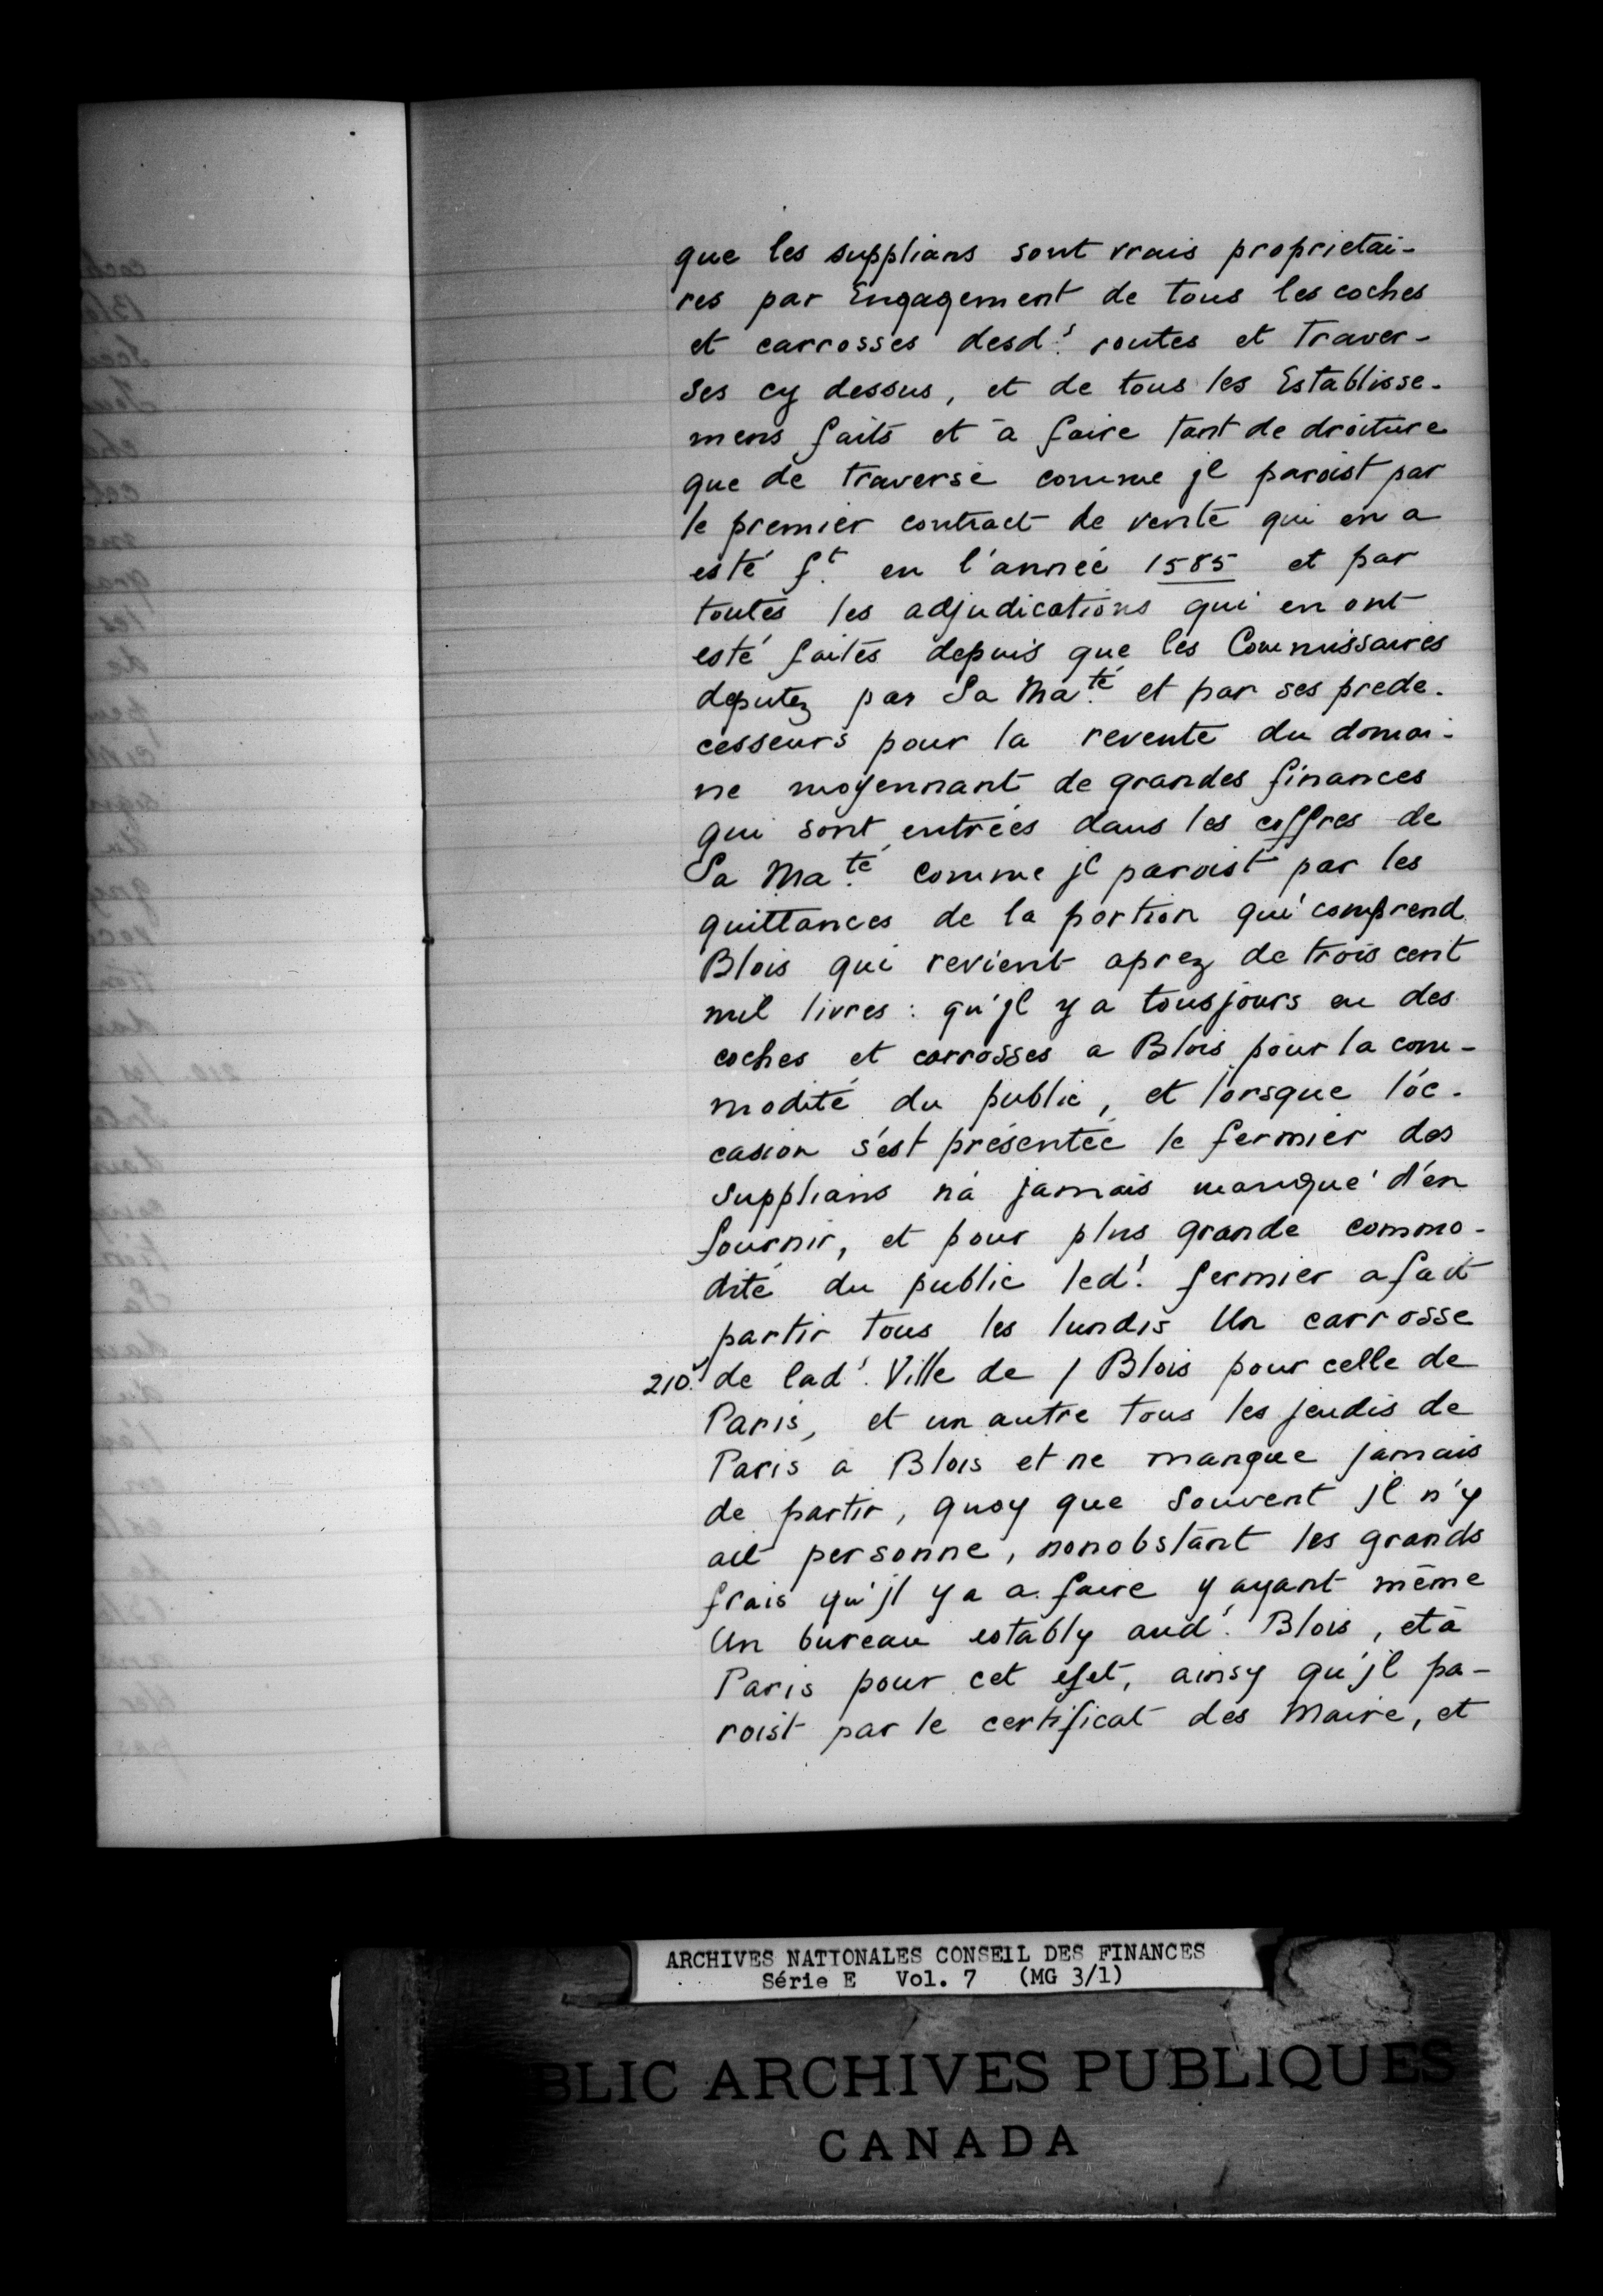 que les supplians sont vrais proprietai-
res par Engagement de tous les coches
et carrosses desd.s routes et traver-
ses cy dessus, et de tous les Establisse-
mens faits et à faire tant de droiture
que de traverse comme jl paroist par
le premier contract de vente qui en a
esté f.t en l'année 1585 et par
toutes les adjudications qui en ont
esté faites depuis que les Commissaires
deputez par Sa Ma.té et par ses prede-
cesseurs pour la revente du domai-
ne moyennant de grandes finances
qui sont entrées dans les coffres de
Sa Ma.té comme jl paroist par les
quittances de la portion qui comprend
Blois qui revient aprez de trois cent
mil livres : qu'jl y a tousjours eu des
coches et carrosses a Blois pour la com-
modité du public, et lorsque l'oc-
casion s'est présentée le fermier des
supplians n'a jamais manqué d'en
fournir, et pour plus grande commo-
dité du public led.t fermier a fait
partir tous les lundis Un carrosse
210. de lad.t Ville de / Blois pour celle de
Paris, et un autre tous les jeudis de
Paris à Blois et ne manque jamais
de partir, quoy que souvent jl n'y
ait personne, nonobstant les grands
frais qu'jl y a a faire y ayant même
Un bureau establÿ aud.t Blois, et à
Paris pour cet efet, ainsy qu'jl pa-
roist par le certificat des Maire, et
ARCHIVES NATIONALES CONSEIL DES FINANCES
Série E Vol. 7 (MG 3/1)
BLIC ARCHIVES PUBLIQUES
CANADA